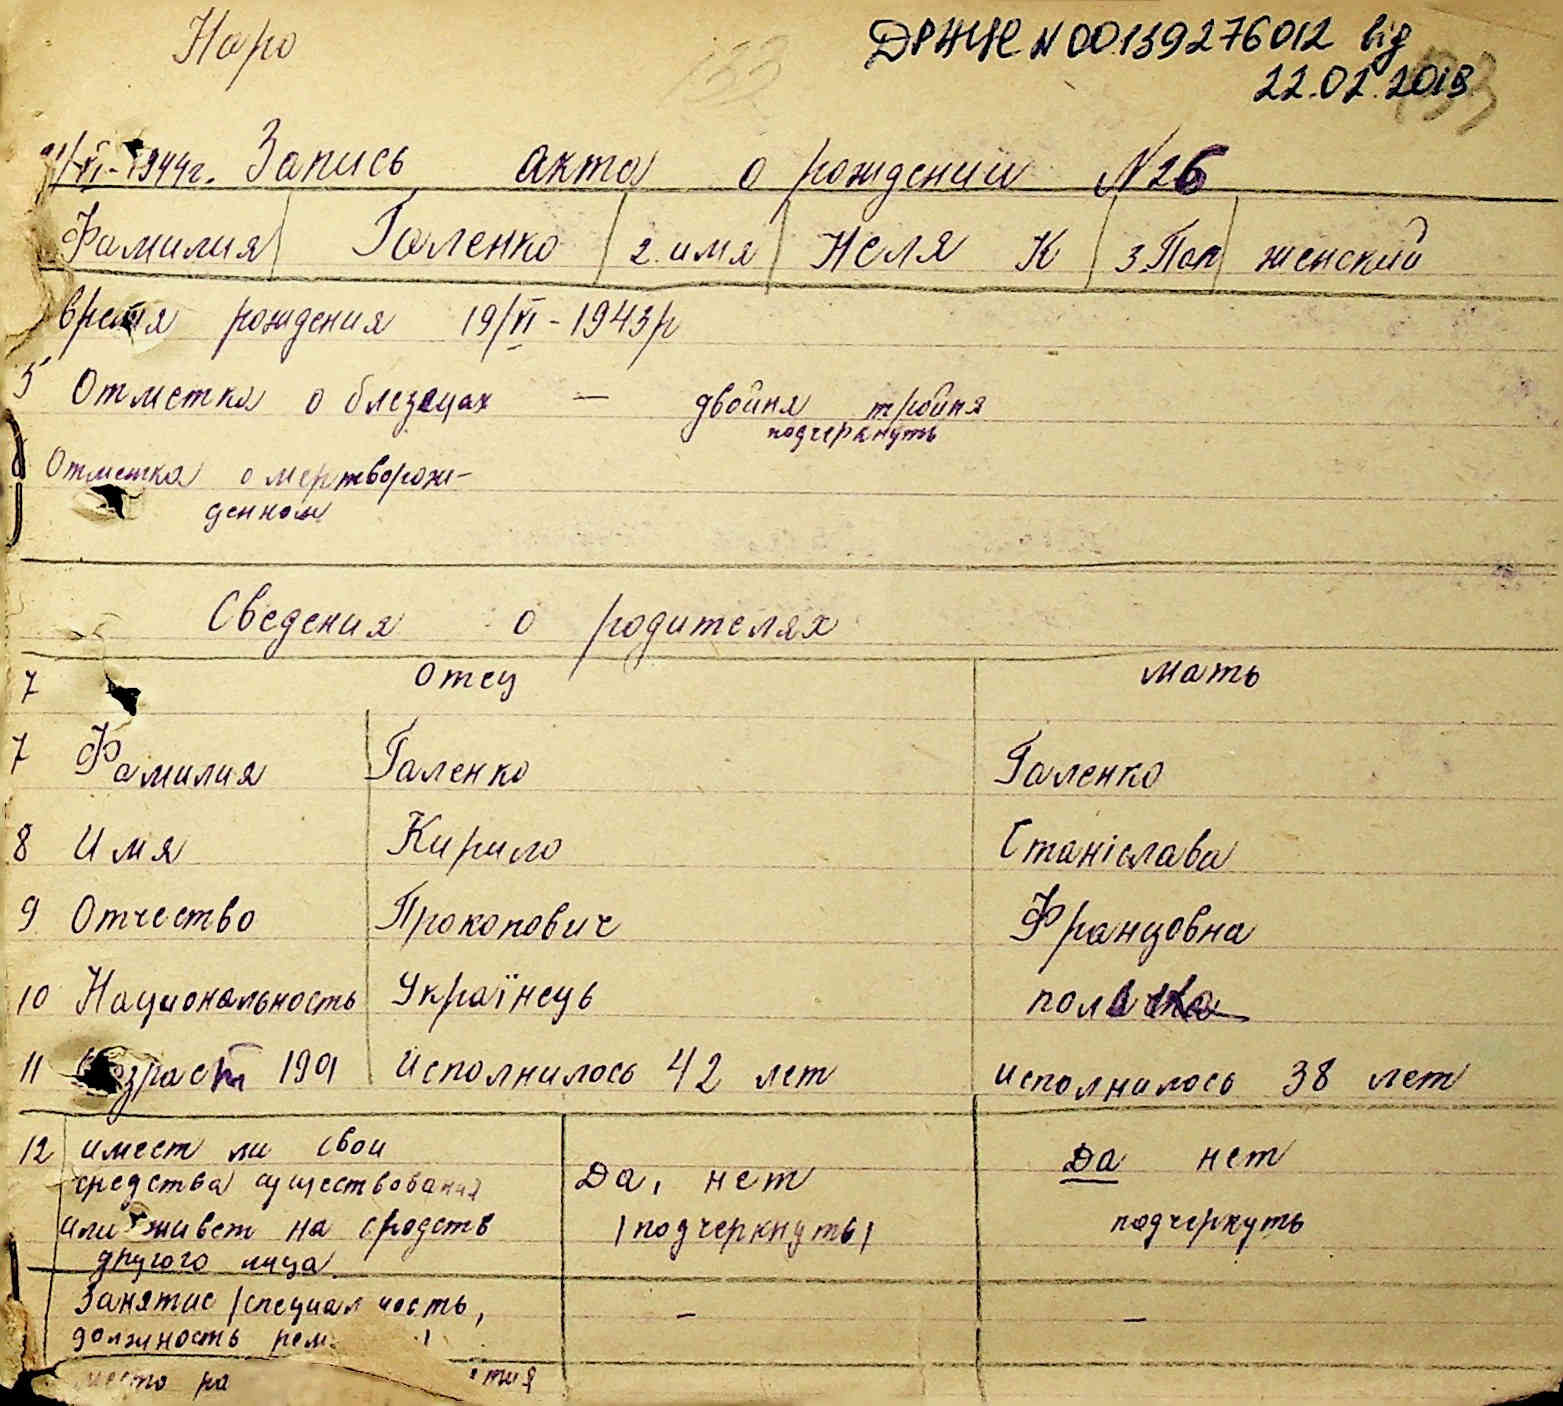 Наро
ДРЖЖ N 00139276012 від
22.02.2013
/VI-1944г. Запись акта о рождении N26
Фамилия Галенко 2. имя Неля К 3. Пол женский
время рождения 19/VI-1943р
5 Отметка о блезецах — двойня тройня
подчеркнуть
6 Отметка о мертворож-
денном
Сведения о родителях
7 Отец мать
7 Фамилия Галенко Галенко
8 Имя Кирило Станіслава
9 Отчество Прокопович Францовна
10 Национальность Українець полячка
11 Возраст 191 исполнилось 42 лет исполнилось 38 лет
12 имеет ли свои
средства существования Да, нет Да нет
или живет на средств (подчеркнуть) подчеркуть
другого лица
Занятие (специал ность, – –
должность рем
место ра тия